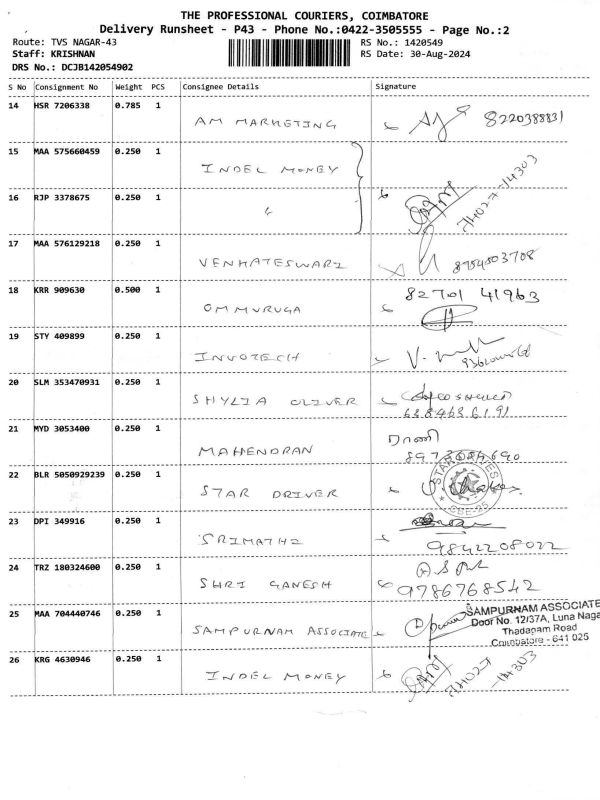 THE PROFESSIONAL COURIERS, COIMBATORE
Delivery Runsheet - P43 - Phone No.:0422-3505555 - Page No.:2
Route: TVS NAGAR-43 RS No.: 1420549
Staff: KRISHNAN RS Date: 30-Aug-2024
DRS No.: DCJB142054902
S No Consignment No Weight PCS Consignee Details Signature
14 HSR 7206338 0.785 1
AM MARKETING 8220388831
15 MAA 575660459 0.250 1
INDEL MONEY
74027-14303
16 RJP 3378675 0.250 1
"
17 MAA 576129218 0.250 1
VENKATESWARI 8754803708
18 KRR 909630 0.500 1 82701 41963
OM MURUGA
19 STY 409899 0.250 1
INVOTECH
20 SLM 353470931 0.250 1
SHYLIA OLIVER
6384686191
21 MYD 3053400 0.250 1 ராணி
MAHENDRAN
22 BLR 5050929239 0.250 1
STAR DRIVER
CBE-25
23 DPI 349916 0.250 1
SRIMATHI 9842208022
24 TRZ 180324600 0.250 1
SHRI GANESH 9786768542
25 MAA 704440746 0.250 1 SAMPURNAM ASSOCIATE
Door No. 12/37A, Luna Naga
SAMPURNAM ASSOCIATE Thadagam Road
Coimbatore - 641 025
26 KRG 4630946 0.250 1
INDEL MONEY 74027-14303